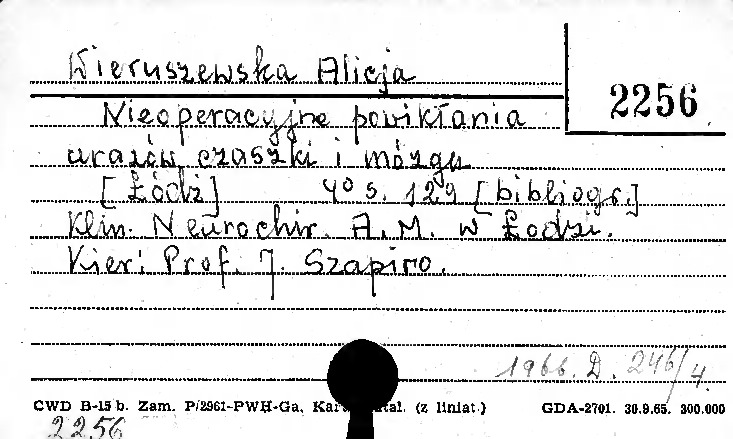 Wieruszewska Alicja
2256
Nieoperacyjne powikłania
urazów czaszki i mózgu
[Łódź] 4° s. 129 [bibliogr.]
Klin. Neurochir. A. M. w Łodzi.
Kier: Prof. J. Szapiro.
1966. D. 246/4.
CWD B-15 b. Zam. P/2961-PWH-Ga. (z liniat.) GDA-2701. 30.9.65. 300.000
2256